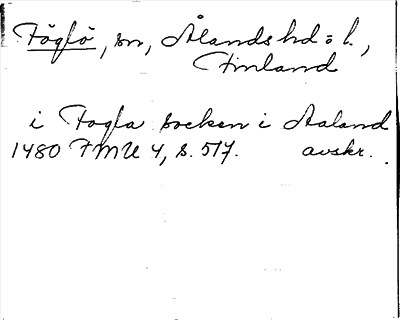 Föglö, sn, Ålands hd o. l.,
Finland
i Fogla socken i Aaland
1480 FMU 4, s. 517. avskr.